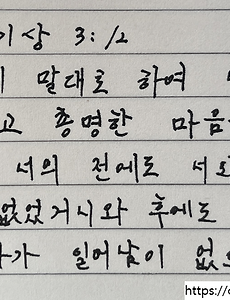 이상 3:12
말대로 하여
고 총명한 마음
너의 전에도 너와
없었거니와 후에도
가 일어남이 없
https://